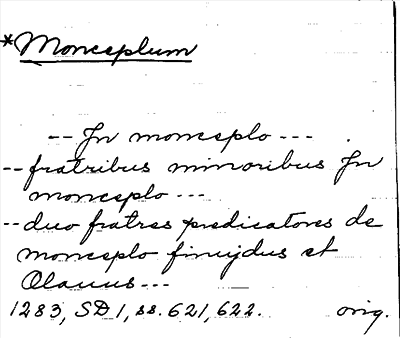 *Monceplum
-- Jn monceplo --- .
-- fratribus minoribus Jn
monceplo ---
-- duo fratres predicatores de
monceplo finvjdus et
Olauus ---
1283, SD 1, ss. 621, 622. orig.